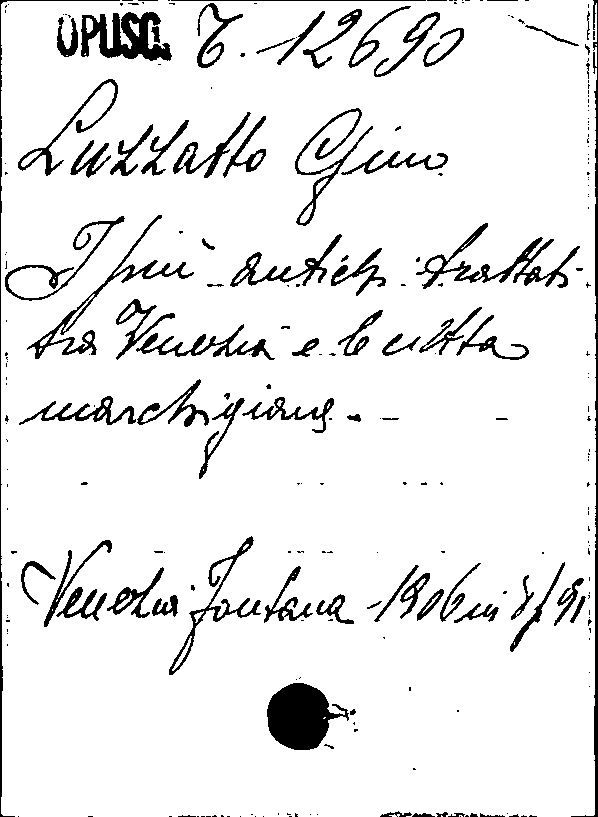 OPUSC. T. 12690
Luzzatto Gino
I più antichi trattati
tra Venezia e le città
marchigiane. -
Venezia Fontana - 1906 in 8/ 91